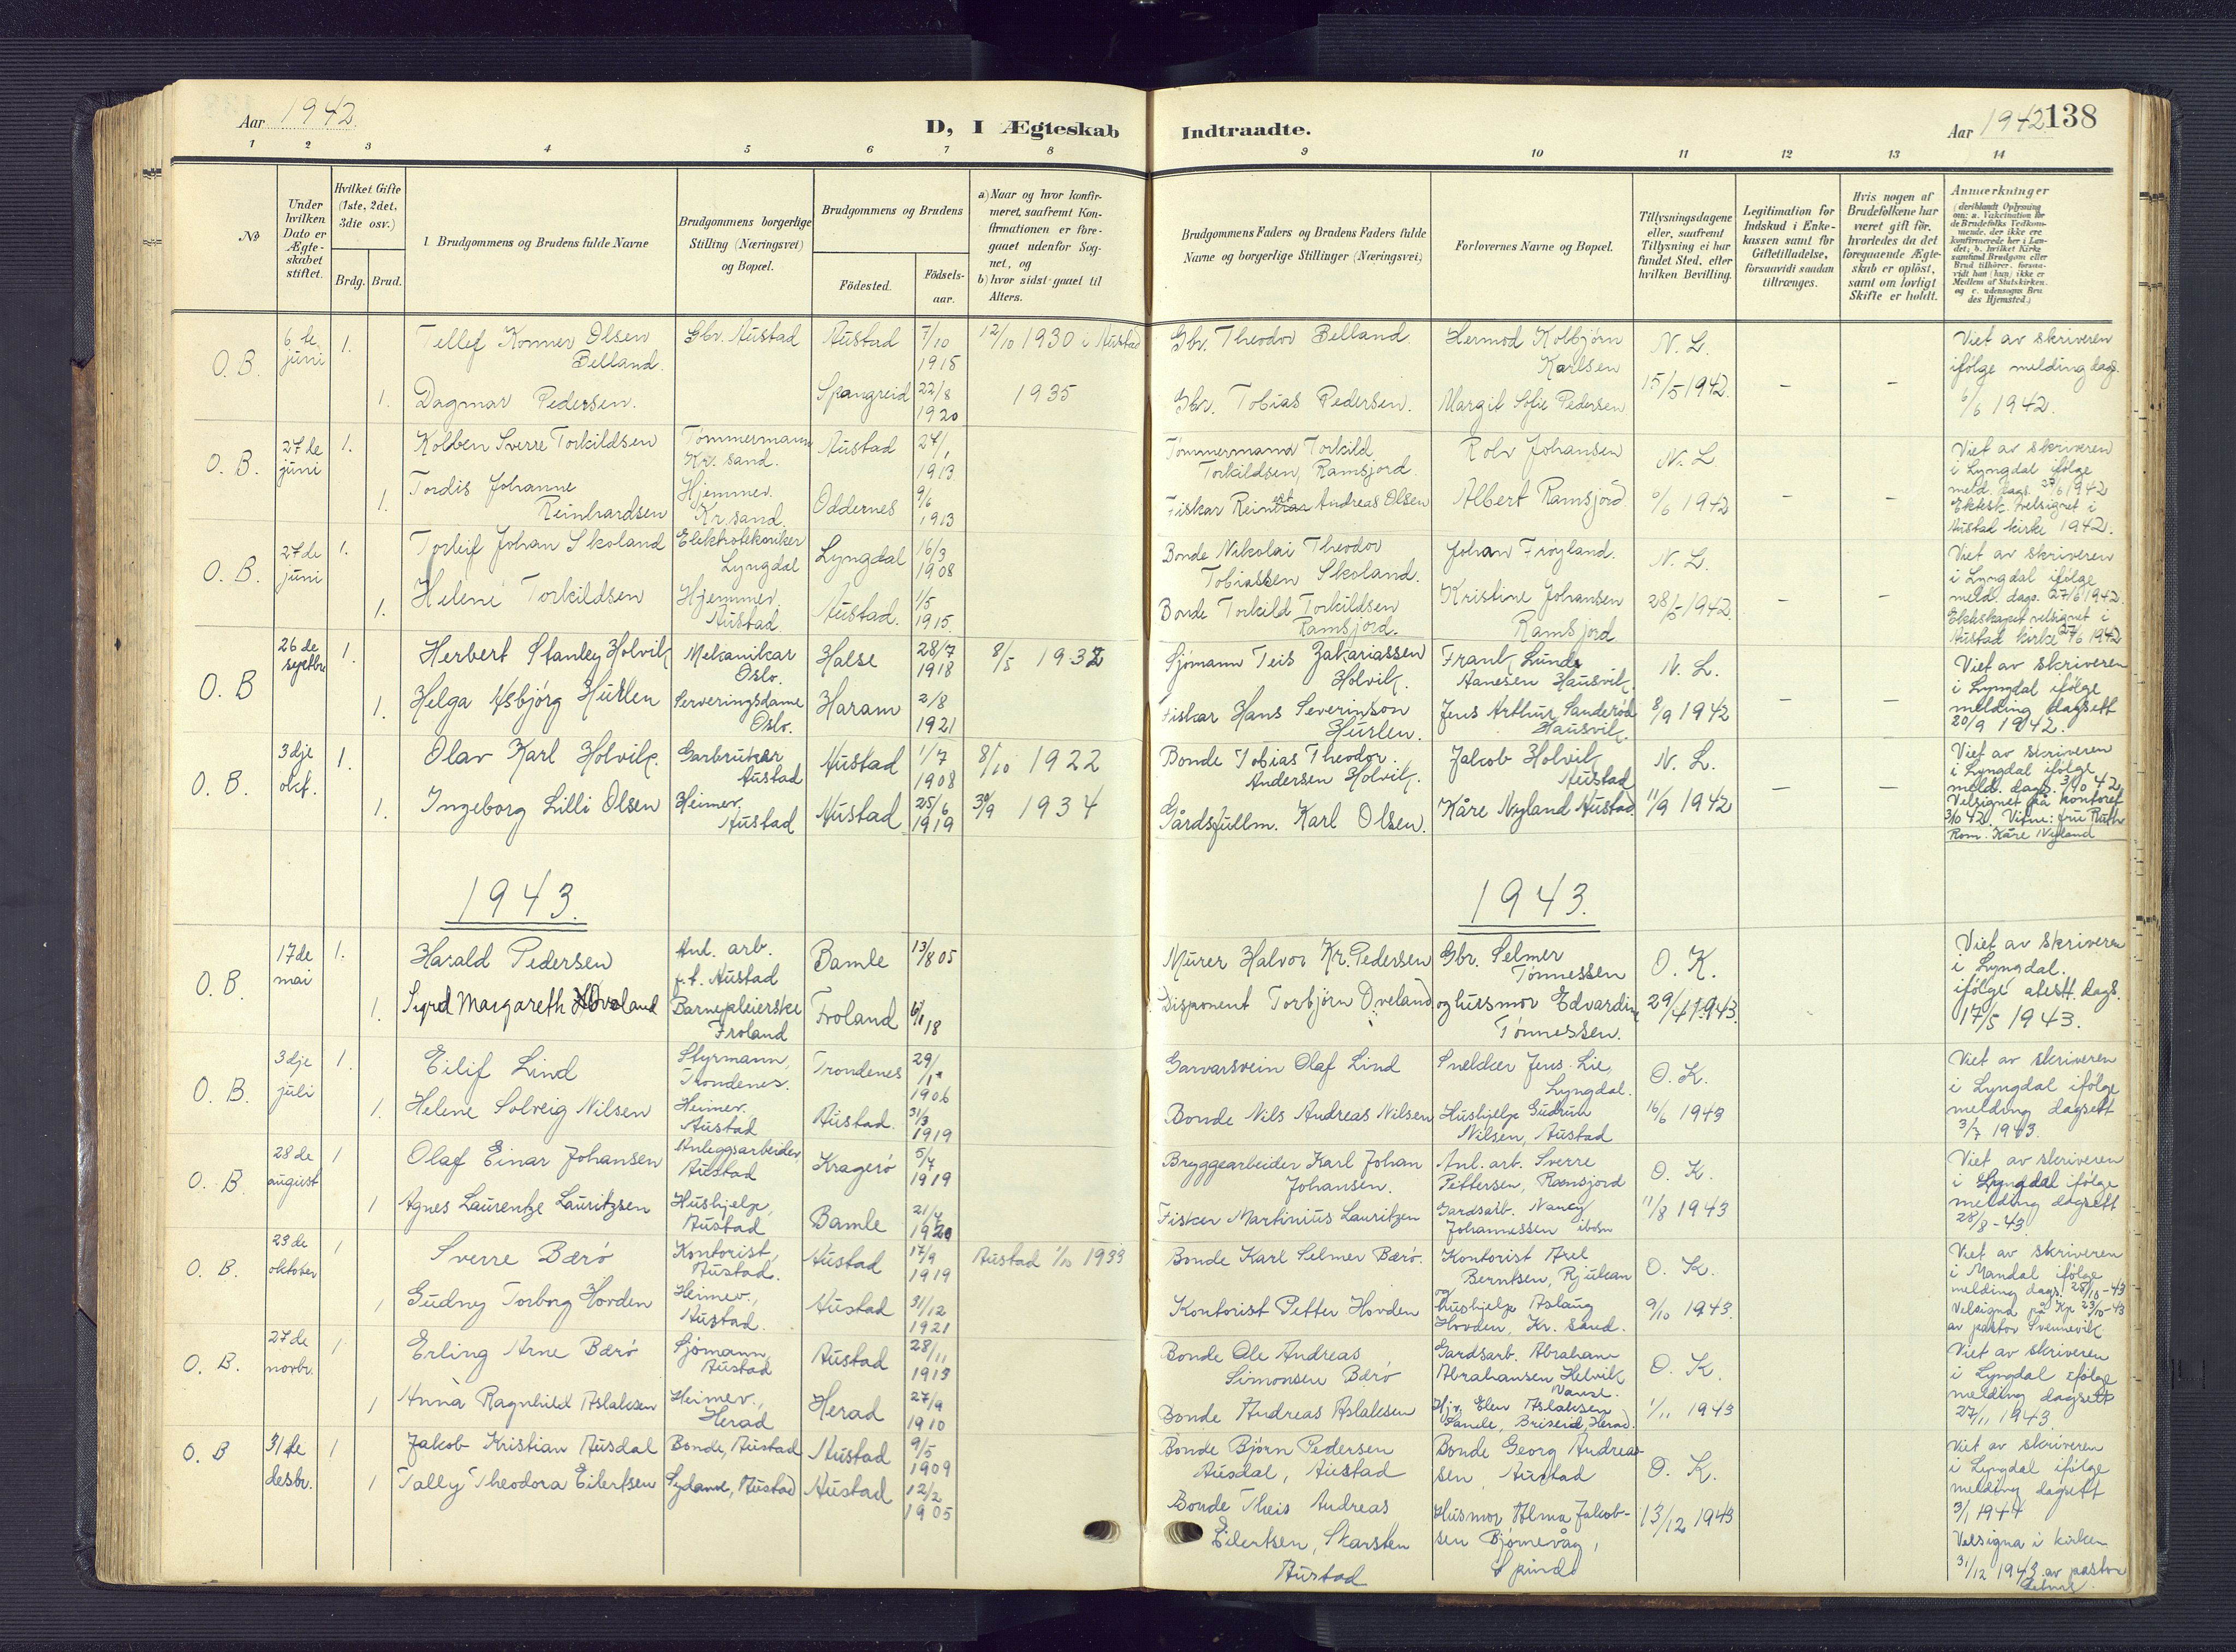 Aar 1942.
D, I Ægteskab Indtraadte.
Aar 1942 138
1 2 3 4 5 6 7 8 9 10 11 12 13 14
No
Under hvilken Dato er Ægte-skabet stiftet.
Hvilket Gifte (1ste, 2det, 3die osv.)
Brdg. Brud.
1. Brudgommens og Brudens fulde Navne
Brudgommens borgerlige Stilling (Næringsvei) og Bopæl.
Brudgommens og Brudens
Födested.
Födsels-aar.
a) Naar og hvor konfir-meret, saafremt Kon-firmationen er fore-gaaet udenfor Sog-net, og
b) hvor sidst gaaet til Alters.
Brudgommens Faders og Brudens Faders fulde Navne og borgerlige Stillinger (Næringsvei)
Forlovernes Navne og Bopæl.
Tillysningsdagene eller, saafremt Tillysning ei har fundet Sted, efter hvilken Bevilling.
Legitimation for Indskud i Enke-kassen samt for Giftetilladelse, forsaavidt saadan tiltrænges.
Hvis nogen af Brudefolkene har været gift för, hvorledes da det foregaaende Ægte-skab er oplöst, samt om lovligt Skifte er holdt.
Anmærkninger
(deriblandt Oplysning om: a. Vakcination for de Brudefolks Vedkom-mende, der ikke ere konfirmerede her i Lan-det; b. hvilket Kirke samfund Brudgom eller Brud tilhörer, forsaa-vidt han (hun) ikke er Medlem af Statskirken. og c. udensogns Bru des Hjemsted.)
O. B. 6 te juni 1. Tellef Konner Olsen Belland. Gbr. Austad Austad 7/10 1915 12/10 1930 i Austad
Gbr. Theodor Belland Hermod Kolbjørn Karlsen N. L. Viet av skriveren
1. Dagmar Pedersen. Spangreid 22/8 1920 1935
Gbr. Tobias Pedersen. Margit Sofie Pedersen 15/5 1942. – – ifølge melding dags. 6/6 1942.
O. B. 27 de juni 1. Kolben Sverre Torkildsen Tømmermann Kr. sand. Austad 27/1 1913
Tømmermand Torkild Torkildsen, Ramsjord. Rolv Johansen N. L. Viet av skriveren i Lyngdal ifølge
1. Tordis Johanne Reinhardsen Hjemmev. Kr. sand. Oddernes 9/6 1913
Fiskar Reinert Andreas Olsen Albert Ramsjord 6/6 1942 – – meld. dags. 27/6 1942 Ektesk. velsignet i Austad kirke 1942.
O. B. 27 de juni 1. Torleif Johan Skoland Elektrotekniker Lyngdal Lyngdal 16/3 1908
Bonde Nikolai Theodor Tobiassen Skoland. Johan Frøyland. N. L. Viet av skriveren i Lyngdal ifølge
1. Helene Torkildsen Hjemmev. Austad Austad. 1/5 1915.
Bonde Torkild Torkildsen Ramsjord. Kristine Johansen Ramsjord 28/5 1942. – – meld. dags. 27/6 1942. Ekteskapet velsignet i Austad kirke 27/6 1942
O. B 26 de septbr. 1. Herbert Stanley Holvik Mekanikar Oslo. Halse 28/7 1918 8/5 1932
Sjømann Teis Zakariassen Holvik. Frank Lunde Aanesen Hausvik. N. L. Viet av skriveren i Lyngdal ifølge
1. Helga Asbjørg Hurlen Serveringsdame Oslo. Haram 2/8 1921
Fiskar Hans Severinson Hurlen. Jens Arthur Sanderød Hausvik. 8/9 1942 – – melding dagsett 20/9 1942.
O. B. 3dje okt. 1. Olav Karl Holvik. Garbrukar Austad Austad 1/7 1908 8/10 1922
Bonde Tobias Theodor Andersen Holvik. Jakob Holvik Austad N. L. Viet av skriveren i Lyngdal ifølge
1. Ingeborg Lilli Olsen Heimev. Austad Austad 25/6 1919 30/9 1934
Gårdsfullm. Karl Olsen. Kåre Nyland Austad. 11/9 1942 – – meld. dags. 3/10 42. Velsignet på kontoret 3/10 42. Vitne: fru Ruth Rom. Kåre Nyland
1943.
1943.
O. B. 17 de mai 1. Harald Pedersen Anl. arb. f. t. Austad Bamle 13/8 05
Murer Halvor Kr. Pedersen Gbr. Selmer Tønnessen O. K. Viet av skriveren i Lyngdal.
1. Sigred Margareth Oveland Barnepleierske Froland Froland 6/1 18
Disponent Torbjørn Oveland og husmor Edvardine Tønnessen. 29/4 1943. ifølge atest. dags. 17/5 1943.
O. B. 3 dje juli 1. Eilif Lind Styrmann, Trondenes. Trondenes 29/1 1906
Garvarsvein Olaf Lind Snekker Jens Lie, Lyngdal. O. K. Viet av skriveren i Lyngdal ifølge
1. Helene Solveig Nilsen Heimev. Austad Austad. 31/3 1919
Bonde Nils Andreas Nilsen Hushjelp Gudrun Nilsen, Austad 16/6 1943 melding dagsett 3/7 1943.
O. B. 28 de august 1 Olaf Einar Johansen Anleggsarbeider, Austad Kragerø 5/7 1919
Bryggearbeider Karl Johan Johansen. Anl. arb. Sverre Pettersen, Ramsjord O. K. Viet av skriveren i Lyngdal ifølge
1 Agnes Laurentze Lauritzsen Hushjelp, Austad Bamle 21/4 1920
Fisker Martinius Lauritzen Gardsarb. Nancy Johannessen ibdm 11/8 1943 melding dagsett 28/8 - 43.
O. B. 23 de oktober 1 Sverre Bærø Kontorist, Austad. Austad 17/9 1919 Austad 1/10 1933
Bonde Karl Selmer Bærø. Kontorist Axel Berntsen, Rjukan O. K. Viet av skriveren i Mandal ifølge
1 Gudny Torborg Hovden Heimev., Austad. Austad 31/12 1921
Kontorist Petter Hovden og hushjelp Aslaug Hovden, Kr. sand. 9/10 1943. melding dags. 28/10 - 43 Velsigna på Kp 23/10 - 43 av pastor Svennevik
O. B. 27 de novbr. 1 Erling Arne Bærø Sjømann, Austad Austad 28/11 1913
Bonde Ole Andreas Simonsen Bærø Gardsarb. Abraham Abrahamsen Helvik Vanse. O. K. Viet av skriveren i Lyngdal ifølge
1 Anna Ragnhild Aslaksen Heimev., Herad Herad 27/9 1910
Bonde Andreas Aslaksen Hjv. Elen Aslaksen Sande, Briseid, Herad. 1/11 1943 melding dagsett 27/11 1943
O. B 31 te desbr. 1 Jakob Kristian Ausdal Bonde, Austad Austad 9/5 1909
Bonde Bjørn Pedersen Ausdal, Austad Bonde Georg Andreas-sen Austad O. K. Viet av skriveren i Lyngdal ifølge
1 Tally Theodora Eilertsen Sydame, Austad Austad 12/2 1905
Bonde Theis Andreas Eilertsen, Skarsten Austad Husmor Alma Jakob-sen Bjørnevåg, Spind. 13/12 1943 melding dagsett 3/1 1944 Velsigna i kirken 31/12 1943 av pastor